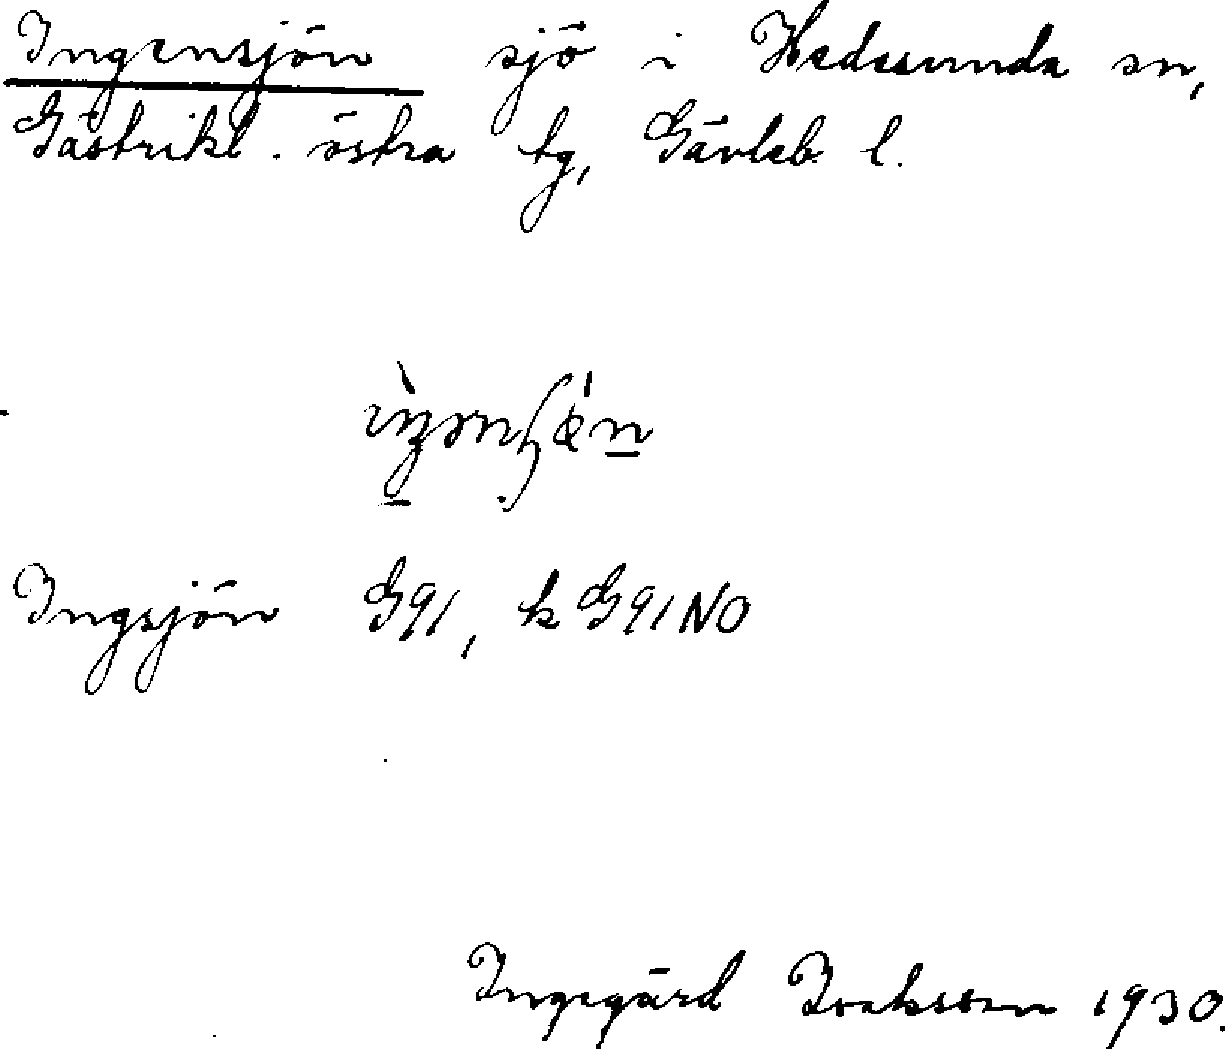 Ingensjön sjö i Hedesunda sn,
Gästrikl. östra tg, Gävleb. l.
Ingsjön G91, k G91NO
Ingegärd 1930.